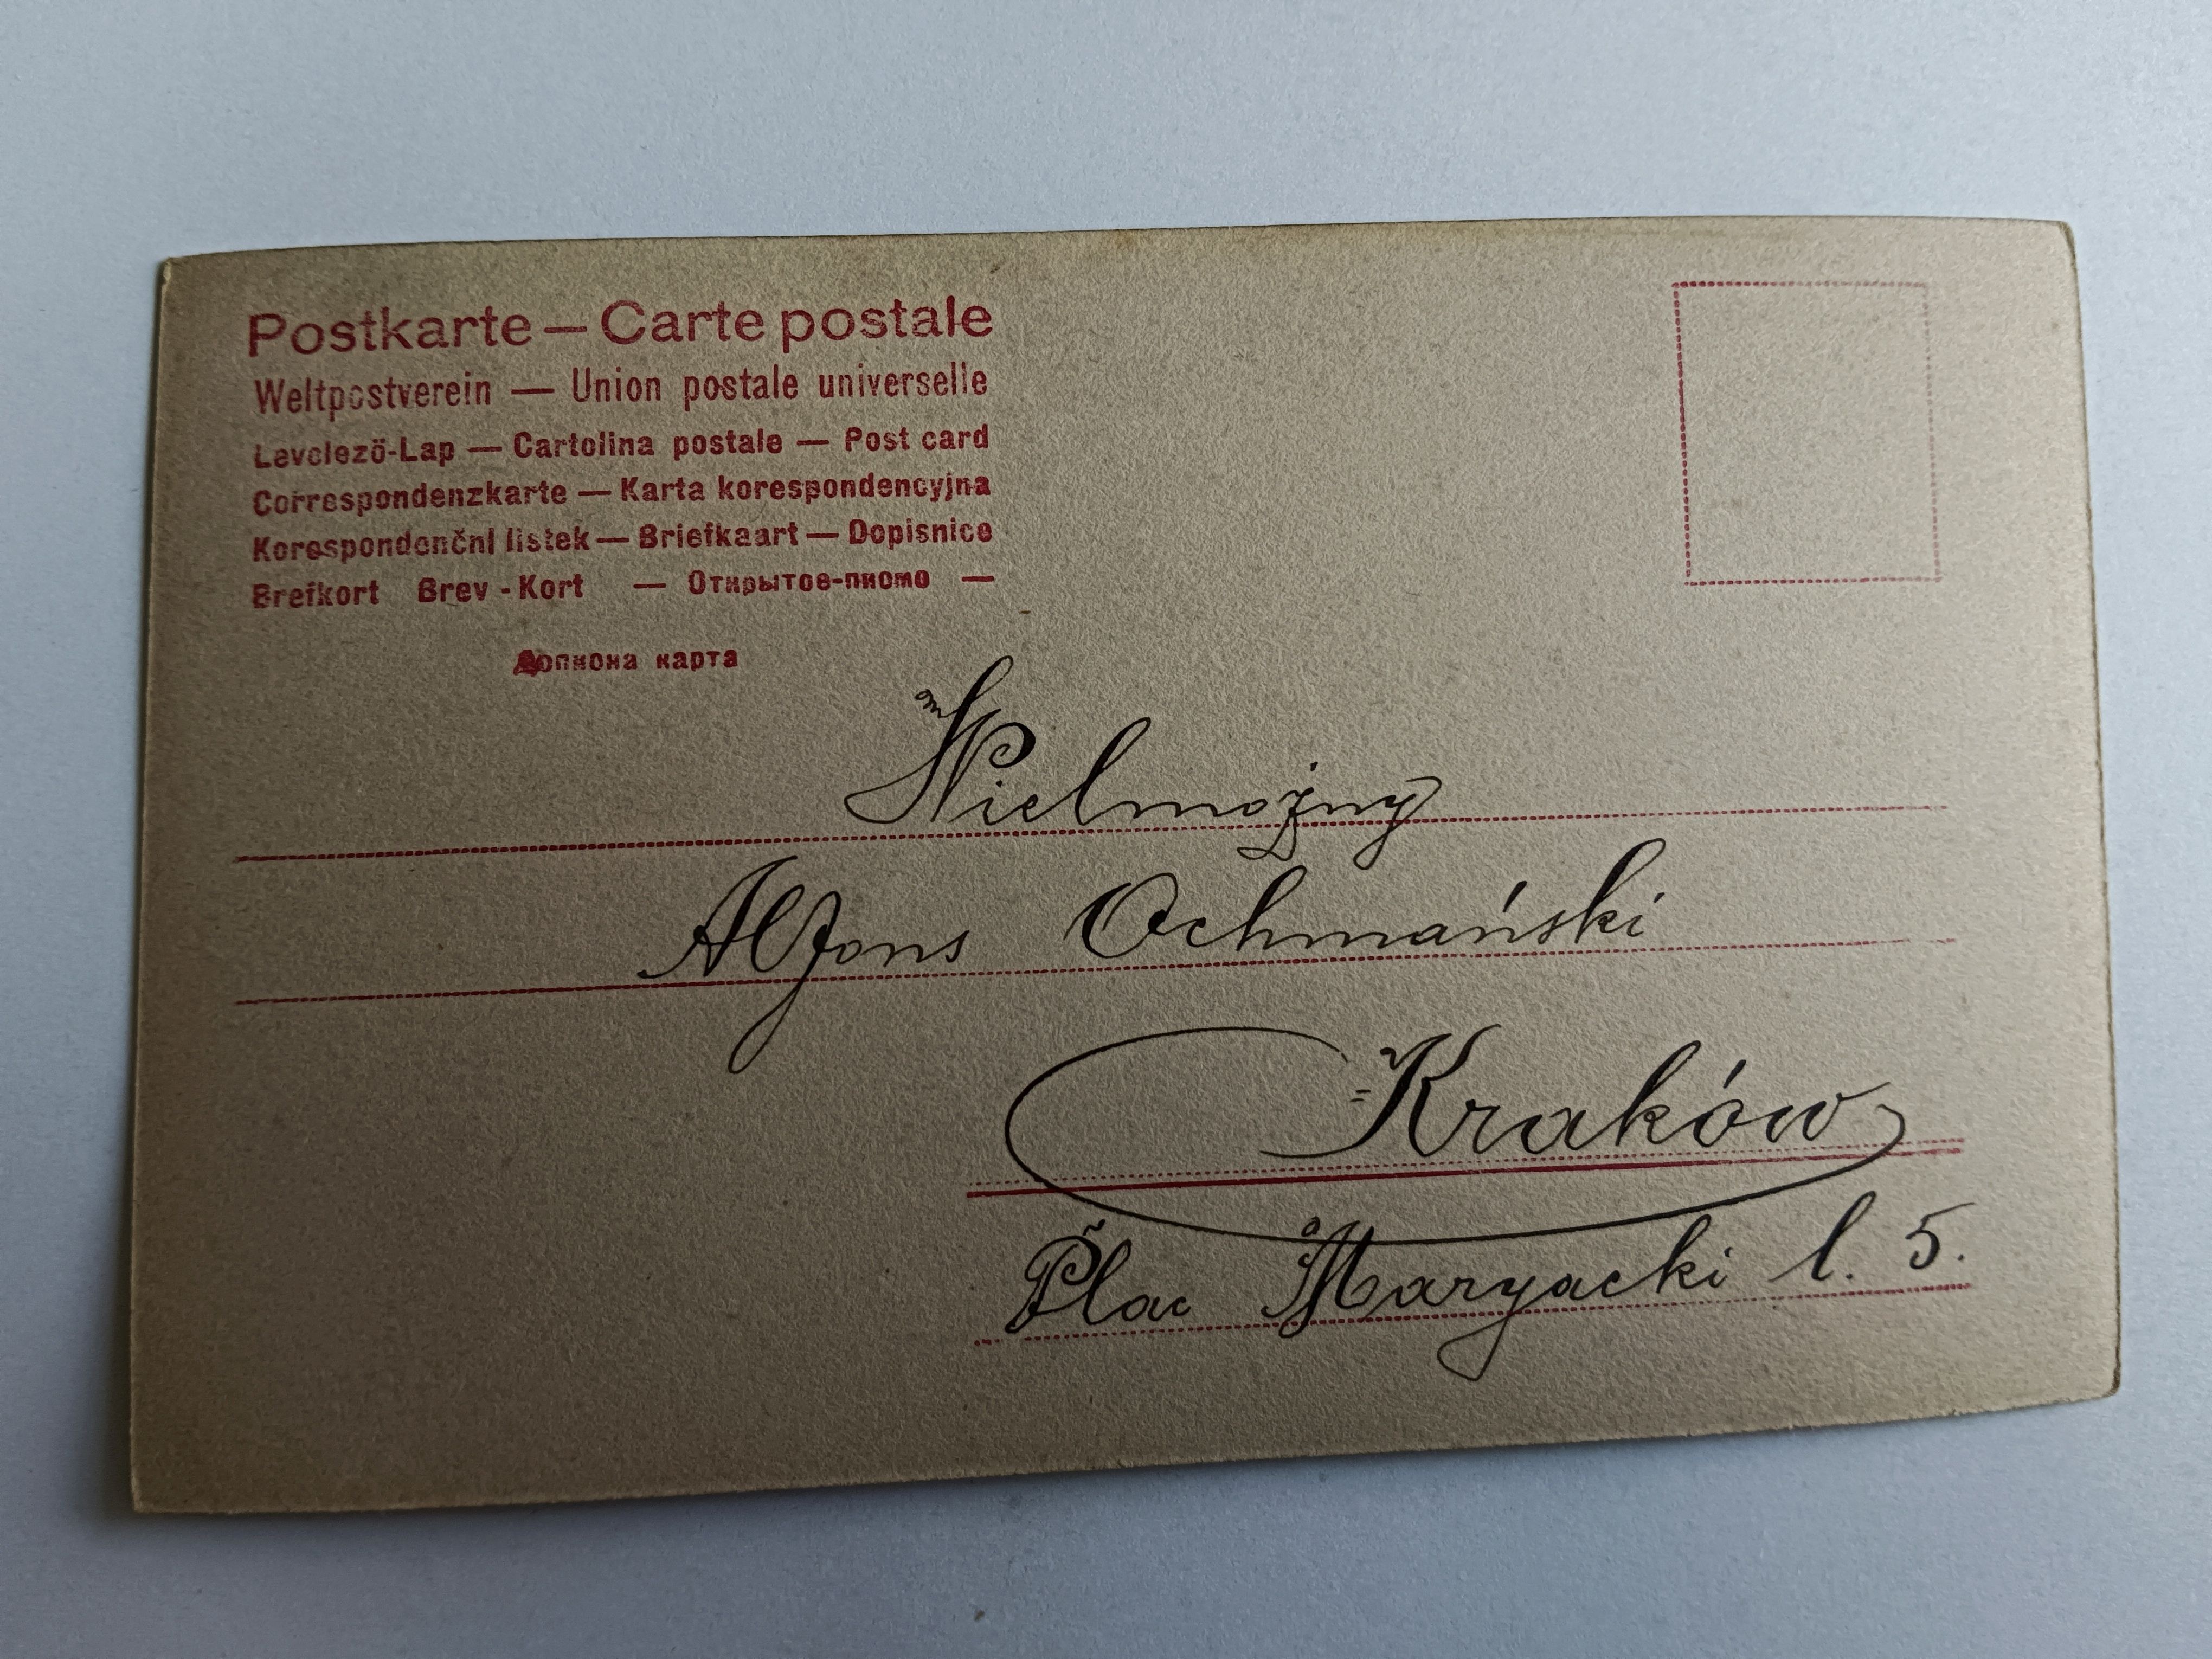 Postkarte — Carte postale
Weltpostverein — Union postale universelle
Levelező-Lap — Cartolina postale — Post card
Correspondenzkarte — Karta korespondencyjna
Korespondenční listek — Briefkaart — Dopisnice
Brefkort Brev-Kort — Открытое-письмо —
Дописна карта
Wielmożny
Alfons Ochmański
Kraków
Plac Maryacki l. 5.